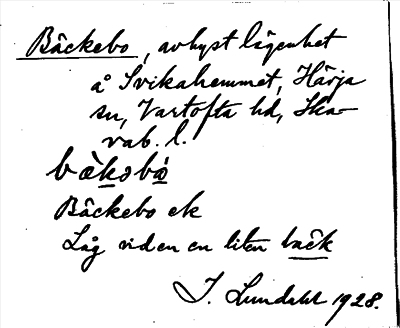 Bäckebo, avhyst lägenhet
å Svikahemmet, Härja
sn, Vartofta hd, Ska-
rab. l.
bàkəbò
Bäckebo ek
Låg vid en en liten bäck
J. Lundahl 1928.